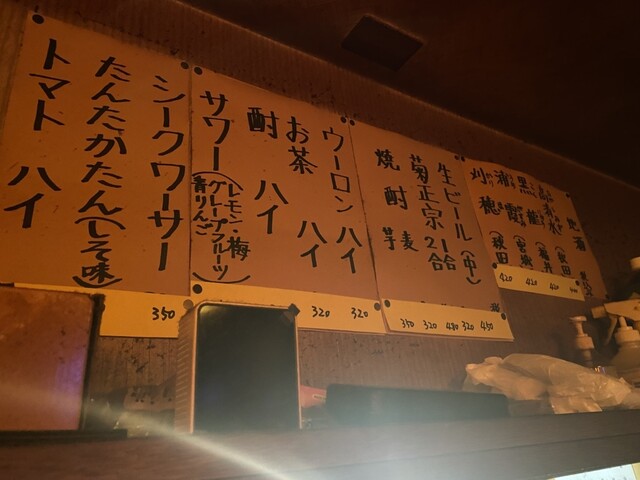 地酒
黒龍(福井
浦霞(宮城
刈穂(秋田
420
420
420
生ビール(中)
菊正宗2合
1合
焼酎 麦
芋
350 320 480 320 450
ウーロンハイ
お茶ハイ
酎ハイ
サワー(レモン・梅
グレープフルーツ)
青りんご
320 320
シークワーサー
たんたかたん(しそ味)
トマトハイ
350